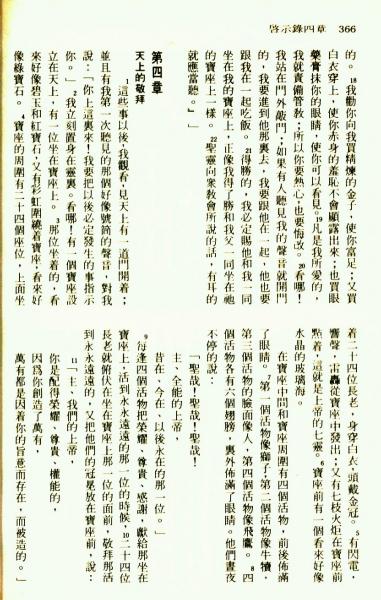 啓示錄四章 366
的。18我勸你向我買精煉的金子，使你富足；又買
白衣穿上，使你赤身的羞恥不會顯露出來；也買眼
藥膏抹你的眼睛，使你可以看見。19凡是我所愛的，
我就責備管教；所以你要熱心，也要悔改。20看哪！
我站在門外敲門；如果有人聽見我的聲音就開門
的，我要進到他那裏去，我要跟他在一起，他也要
跟我在一起吃飯。21得勝的，我必定賜他和我一同
坐在我的寶座上，正像我得了勝和我父一同坐在祂
的寶座上一樣。22聖靈向眾教會所說的話，有耳的
就應當聽。」」
第四章
天上的敬拜
1這些事以後，我觀看，見天上有一道門開着；
並且有我第一次聽見的那個好像號筒的聲音，對我
說：「你上這裏來！我要把以後必定發生的事指示
你。」2我立刻置身在靈裏。看哪！有一個寶座設
立在天上，有一位坐在寶座上。3那位坐着的，看
來好像碧玉和紅寶石，又有彩虹圍繞着寶座，看來好
像綠寶石。4寶座的周圍有二十四個座位，上面坐
着二十四位長老，身穿白衣，頭戴金冠。5有閃電、
響聲、雷轟從寶座中發出；又有七枝火炬在寶座前
點着，這就是上帝的七靈。6寶座前有一個看來好像
水晶的玻璃海。
在寶座中間和寶座周圍有四個活物，前後佈滿
了眼睛。7第一個活物像獅子，第二個活物像牛犢，
第三個活物的臉面像人，第四個活物像飛鷹。8四
個活物各有六個翅膀，裏外佈滿了眼睛。他們晝夜
不停的說：
「聖哉！聖哉！聖哉！
主、全能的上帝，
昔在、今在、以後永在的那一位。」
9每逢四個活物把榮耀、尊貴、感謝，獻給那坐在
寶座上，活到永永遠遠的那一位的時候，10二十四位
長老就俯伏在坐在寶座上那一位的面前，敬拜那活
到永永遠遠的，又把他們的冠冕放在寶座前，說：
11「主、我們的上帝，
你是配得榮耀、尊貴、權能的，
因爲你創造了萬有，
萬有都是因着你的旨意而存在，而被造的。」